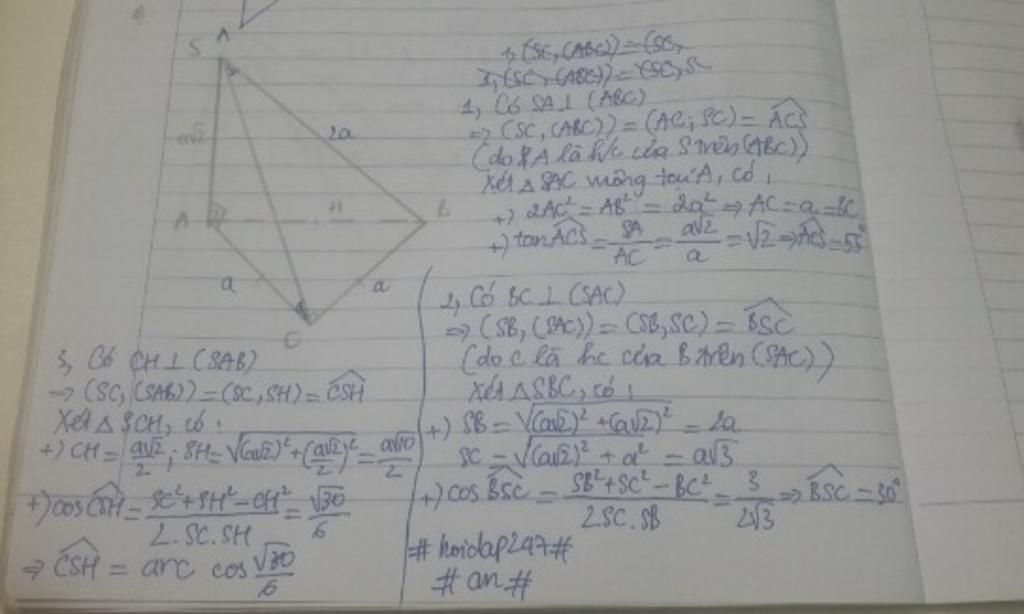 A
S
a√2
2a
A
H
B
a
a
C
1, (SC, (ABC)) = (SC,
3, (SC, (ABC)) = (SC, S
1, Có SA⊥(ABC)
⇒ (SC, (ABC)) = (AC; SC) = ACS
(do A là h/c của S trên (ABC))
Xét △SAC vuông tại A, có:
+) 2AC² = AB² = 2a² ⇒ AC = a = BC
+) tan ACS = SA/AC = a√2/a = √2 ⇒ ACS = 55°
2, Có BC⊥(SAC)
⇒ (SB, (SAC)) = (SB, SC) = BSC
(do C là hc của B trên (SAC))
Xét △SBC, có:
+) SB = √((a√2)² + (a√2)²) = 2a
SC = √((a√2)² + a²) = a√3
+) cos BSC = (SB² + SC² − BC²)/(2SC.SB) = 3/(2√3) ⇒ BSC = 30°
#hoidap247#
#an#
3, Có CH⊥(SAB)
⇒ (SC, (SAB)) = (SC, SH) = CSH
Xét △SCH, có:
+) CH = a√2/2; SH = √((a√2)² + (a√2/2)²) = a√10/2
+) cos CSH = (SC² + SH² − CH²)/(2.SC.SH) = √30/6
⇒ CSH = arc cos √30/6